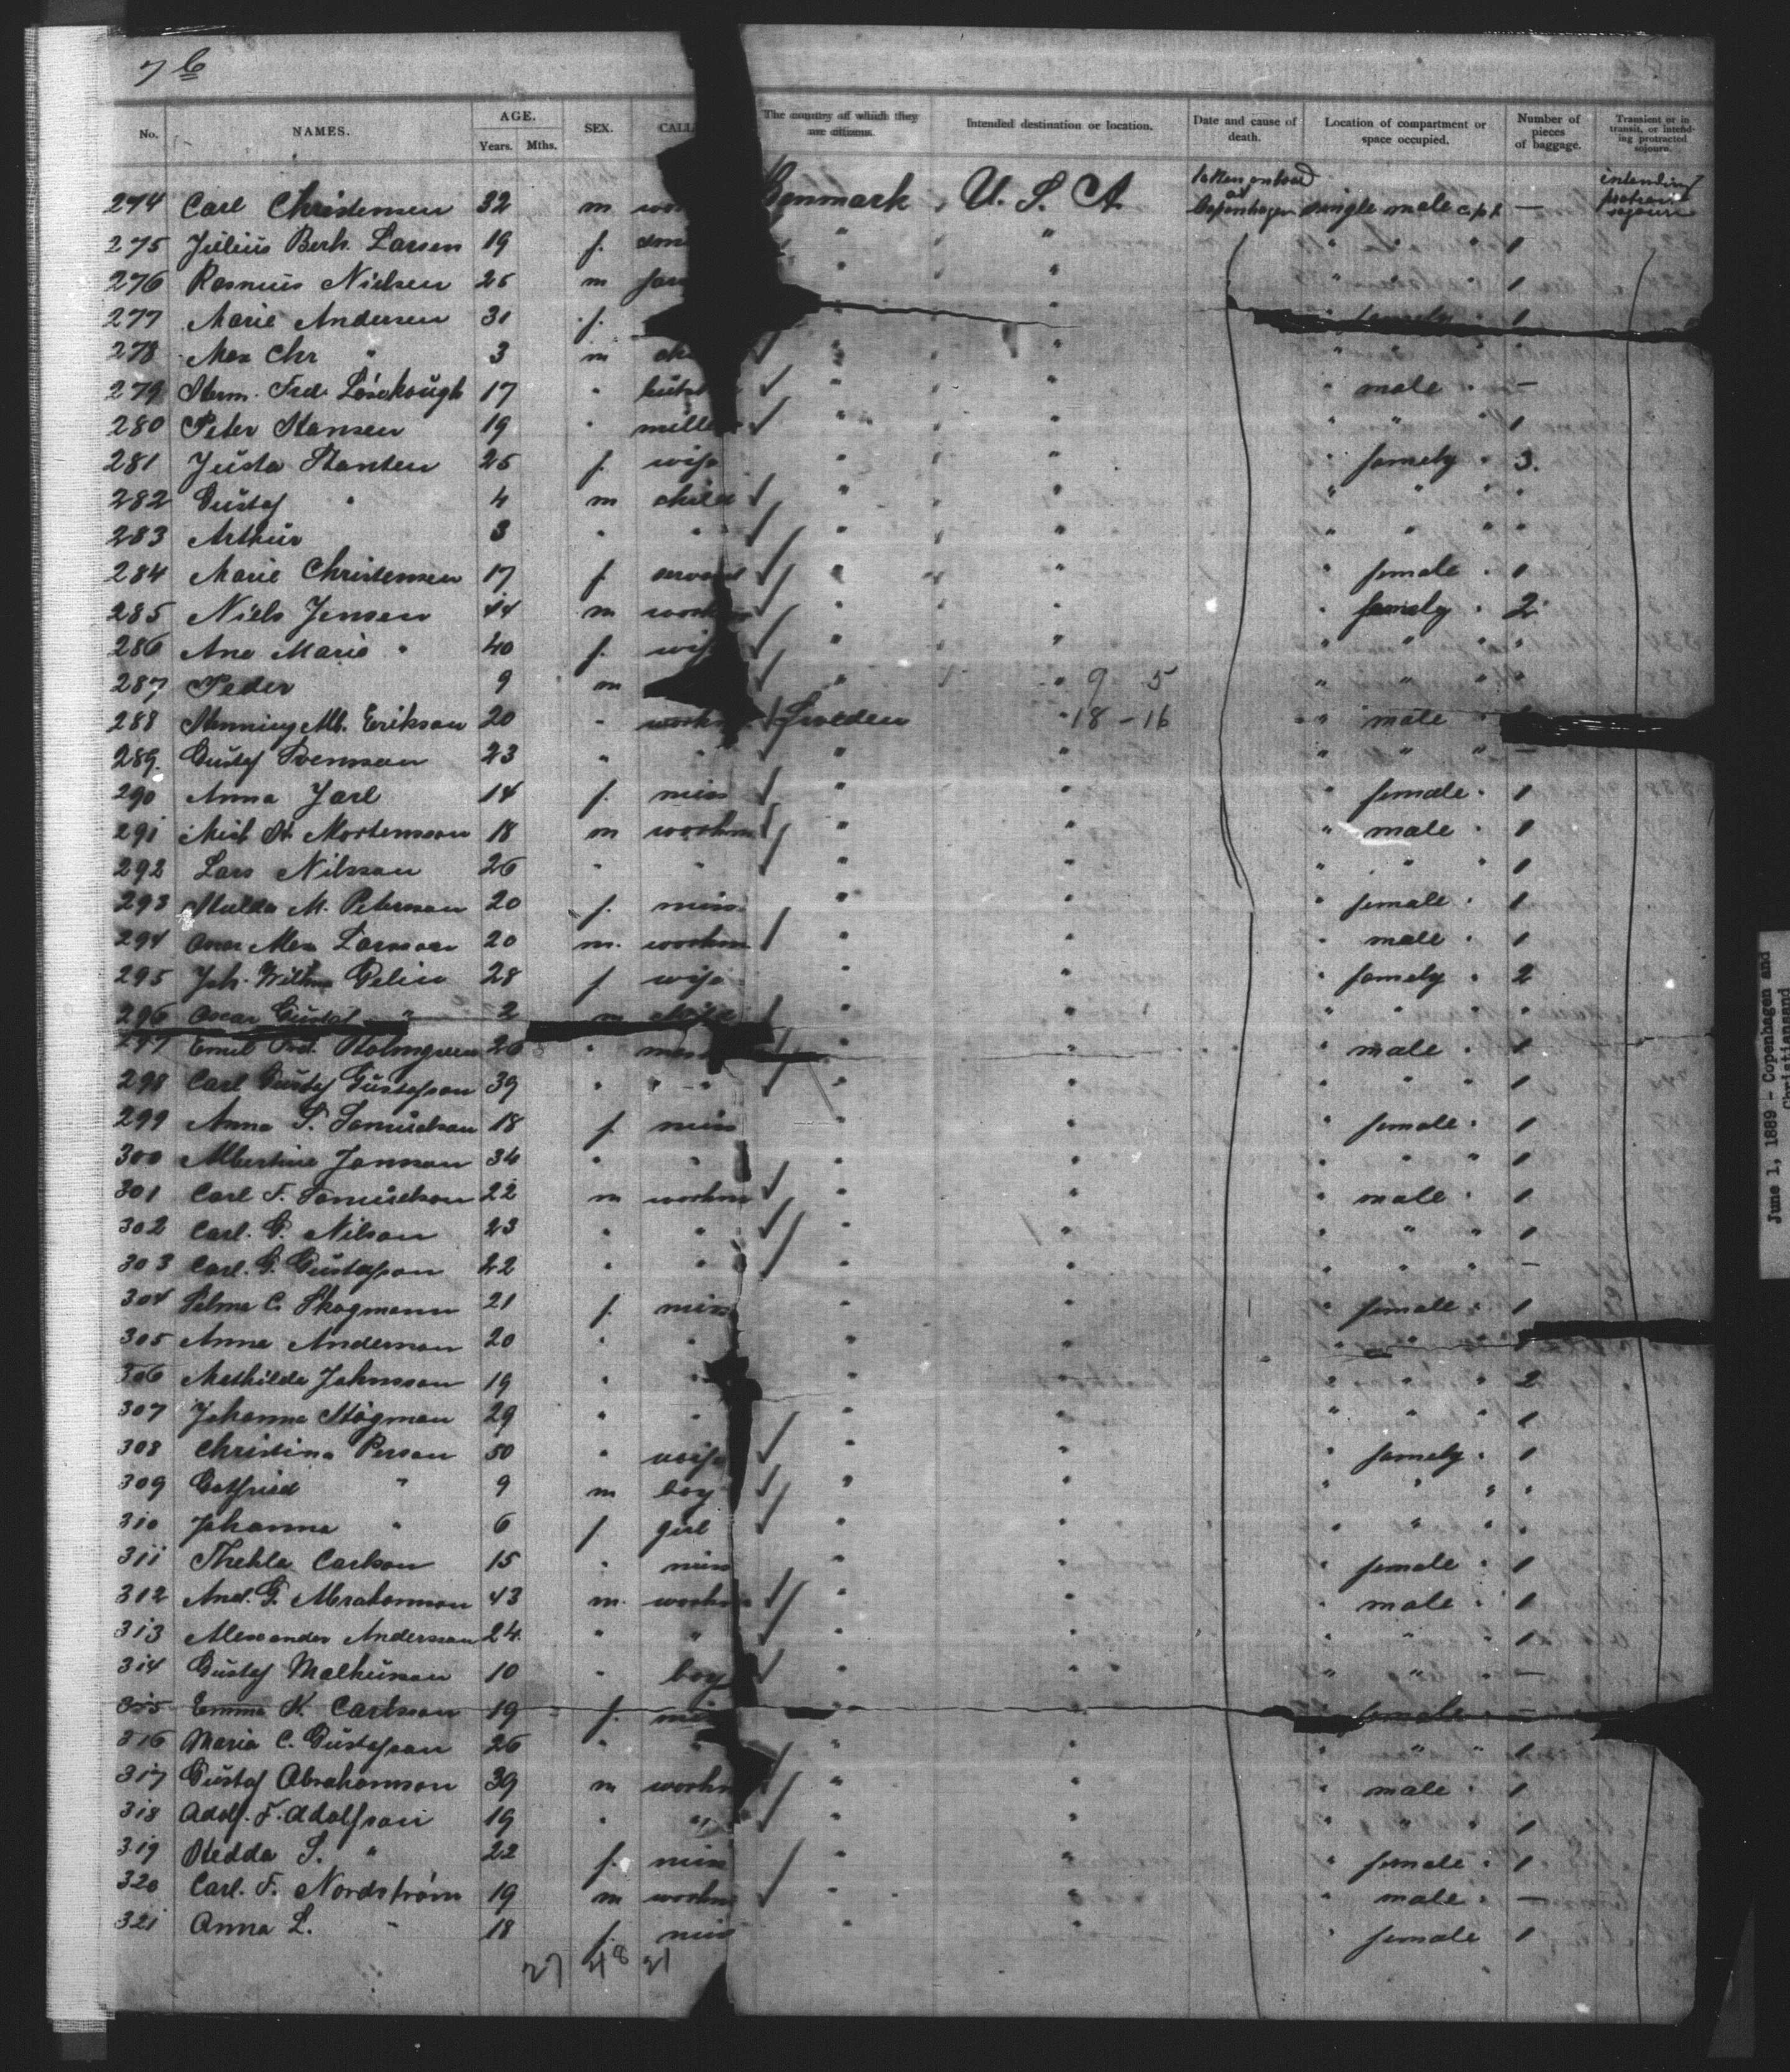 7 b
No. NAMES. AGE. Years. Mths. SEX. CALL The country of which they are citizens. Intended destination or location. Date and cause of death. Location of compartment or space occupied. Number of pieces of baggage. Transient or in transit, or intending protracted sojourn.
274 Carl Christensen 32 m Denmark U. S. A. taken onboard at Copenhagen single male cpt — intending sojourn
275 Julius Berh. Larsen 19 f. " " " " " 1
276 Rasmus Nielsen 25 m " " " " " 1
277 Marie Andersen 31 f. " " " family " 1
278 Chr " 3 m " " " " " "
279 Herm. Fred. 17 " " " " male " —
280 Peter Hansen 19 " mill " " " " " 1
281 Justa Hanten 25 f. wife " " " family " 3.
282 Gustaf " 4 m child " " " " " "
283 Arthur 3 " " " " " " " "
284 Marie Christensen 17 f. servant " " " female " 1
285 Niels Jensen 44 m workm " " " family " 2
286 Ane Marie " 40 f. wife " " " " " "
287 Peder 9 m " " 9 5 " " " "
288 Henning Alb. Erikson 20 " workm Sweden " 18 - 16 " male "
289. Gustaf Svensson 23 " " " " " " " —
290 Anna Jarl 14 f. miss " " " female " 1
291 Mortensson 18 m workm " " " male " 1
292 Lars Nilsson 26 " " " " " " " 1
293 Hulda M. Peterson 20 f. miss " " " female " 1
294 Oscar Alex Larsson 20 m. workm " " " male " 1
295 Joh. Wilhma Gelin 28 f wife " " " family " 2
296 Oscar Gustaf " 2 m child " " " " " "
297 Emil Fred. Holmgreen 26 " " " " male " 1
298 Carl Gustaf Gustafson 39 " " " " " " " 1
299 Anna S. Samuelson 18 f. miss " " " female " 1
300 Albertina Jonsson 34 " " " " " " " 1
301 Carl F. Samuelson 22 m workm " " " male " 1
302 Carl. G. Nilson 23 " " " " " " " 1
303 Carl. G. Gustafson 22 " " " " " " " —
304 Selma C. Skogmann 21 f. miss " " " female " 1
305 Anna Anderson 20 " " " " " " "
306 Mathilda Johnsson 19 " " " " " " " 2
307 Johanna Högman 29 " " " " " " " 1
308 Christina Person 50 " wife " " " family " 1
309 Gotfried " 9 m boy " " " " " "
310 Johanna " 6 f girl " " " " " "
311 Thekla Carlson 15 " miss " " " female " 1
312 And. G. Abrahamson 43 m. workm " " " male " 1
313 Alexander Andersson 24 " " " " " " " 1
314 Gustaf 10 " boy " " " " " —
315 Emma K. Carlsson 19 f. mi " " " female " —
316 Maria C. Gustafson 26 " " " " " " " 1
317 Gustaf Abrahamson 39 m workm " " " male " 1
318 Adolf. F. Adolfson 19 " " " " " " " 1
319 Hedda S. " 22 f. miss " " " female " 1
320 Carl. F. Nordström 19 m workm " " " male " —
321 Anna L. " 18 f. miss " " " female 1
27 48 21
June 1, 1889 - Copenhagen and
Christiansand